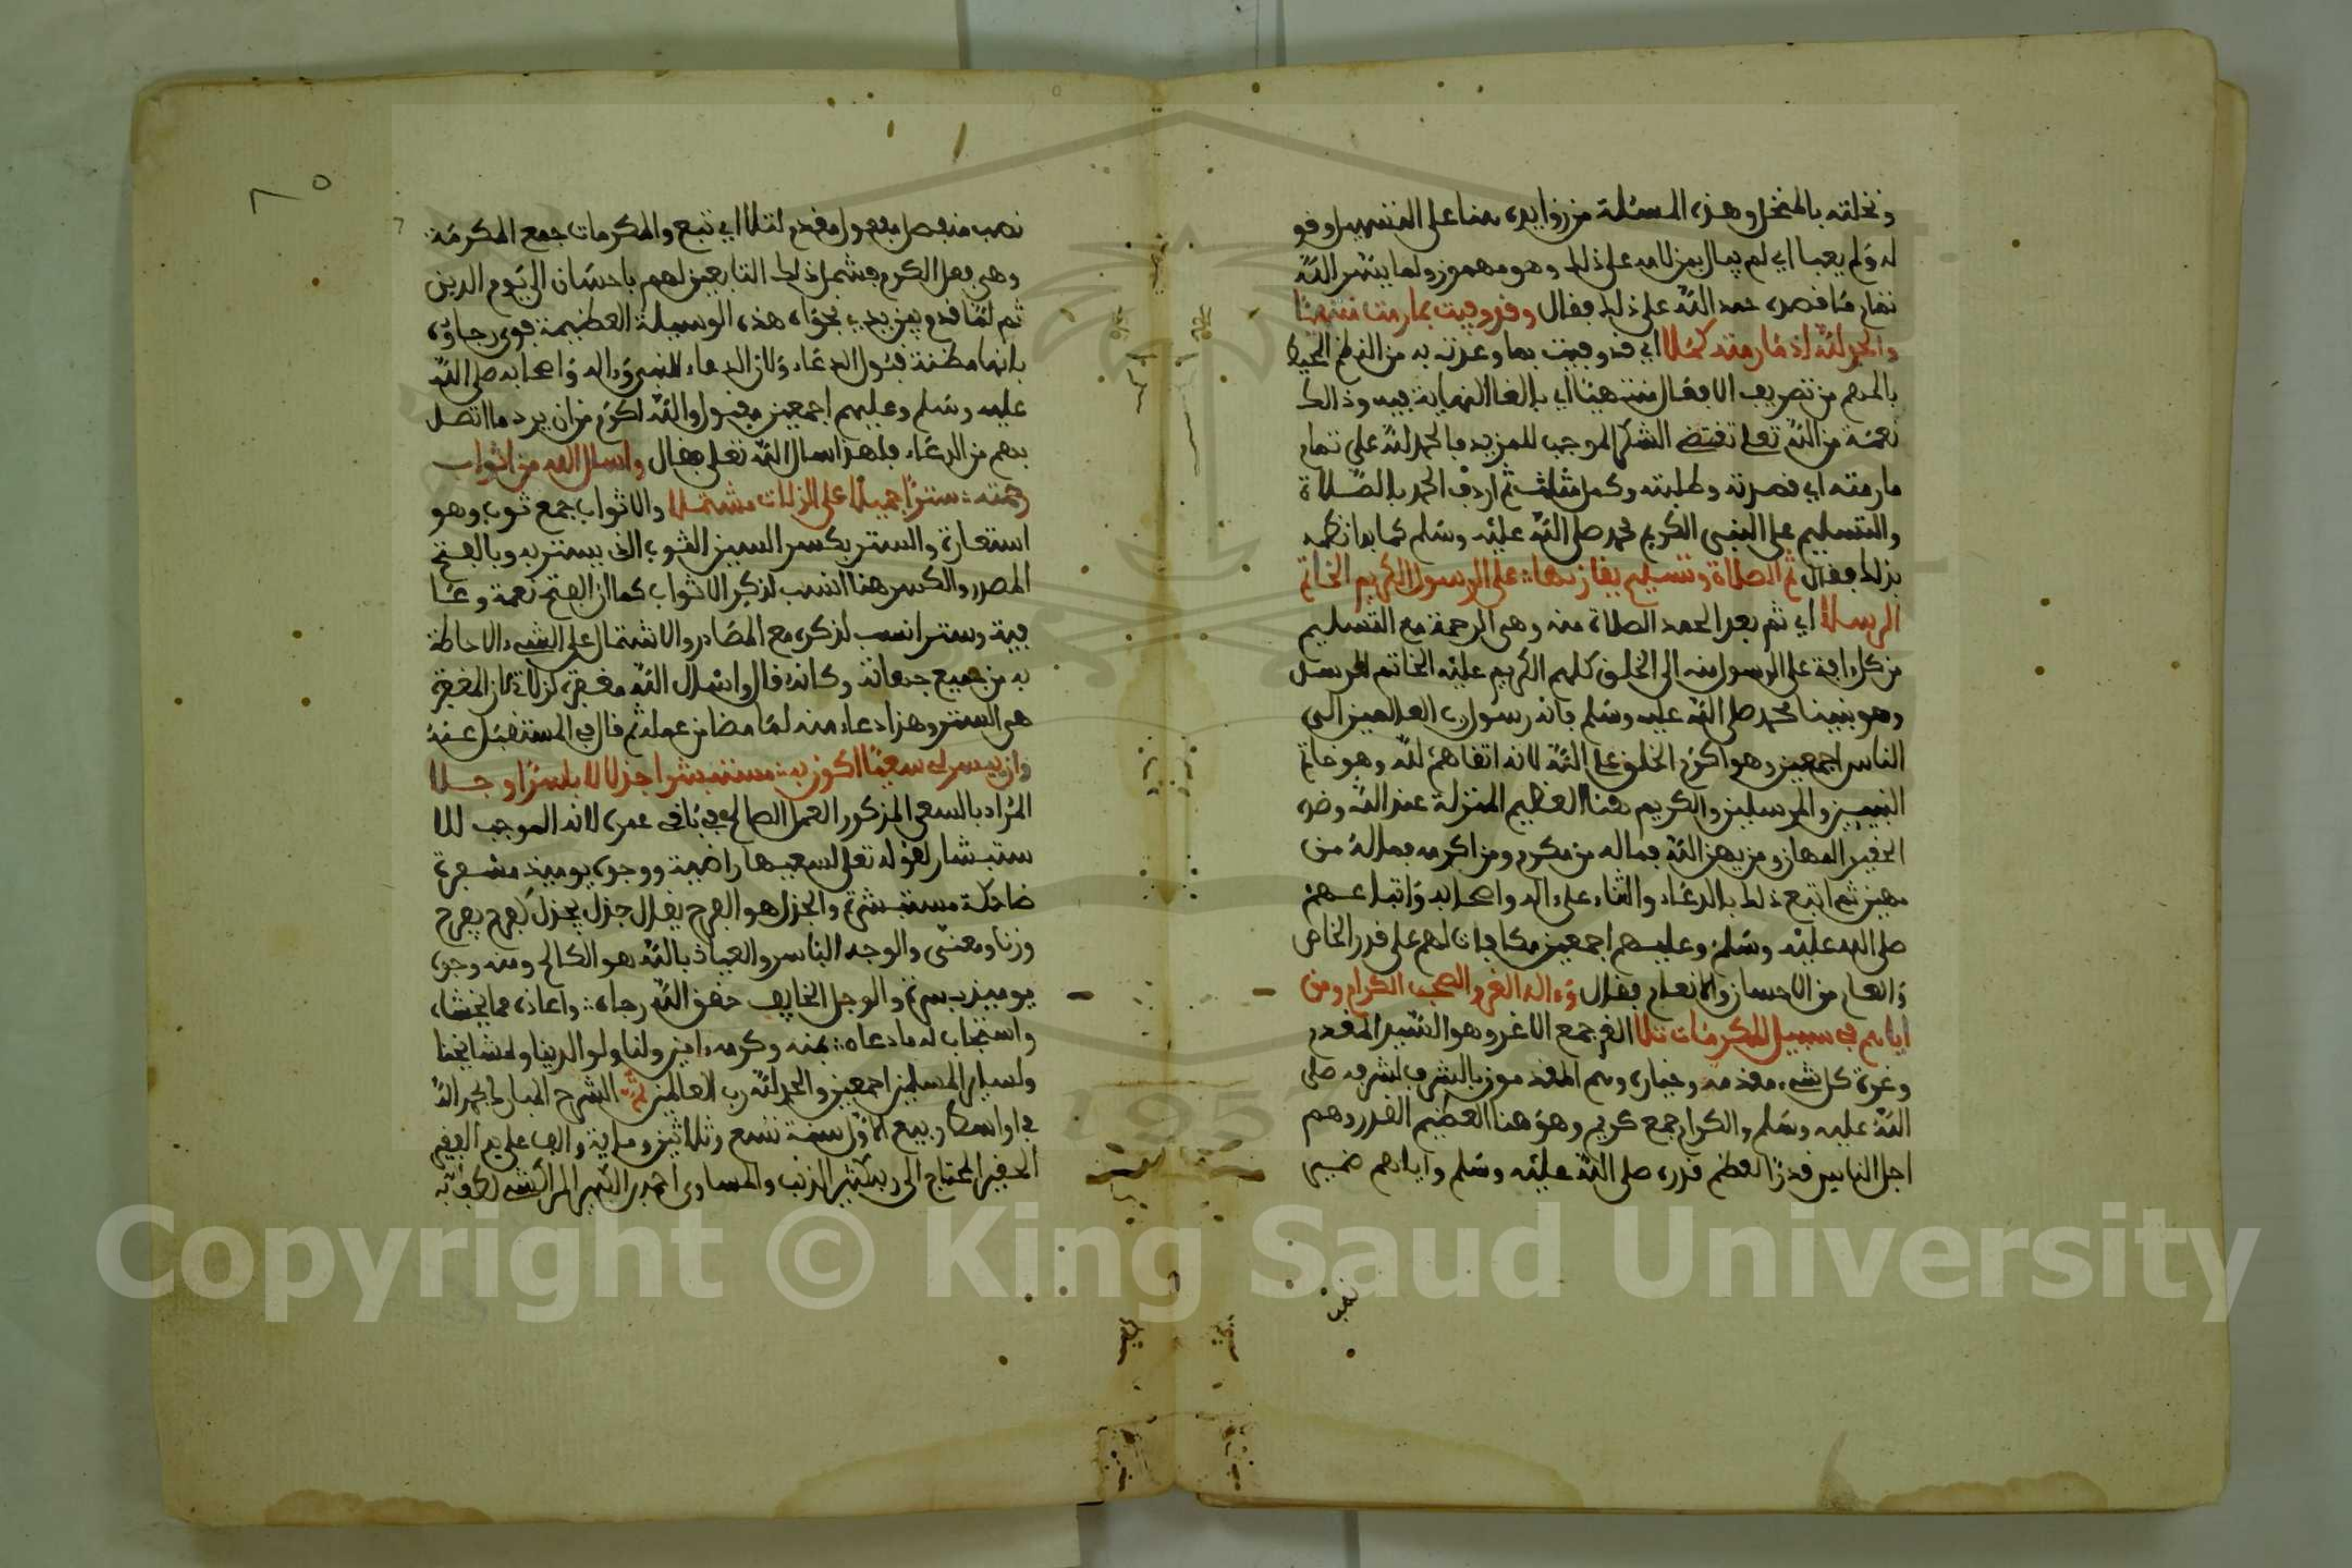 ونخلته بالمنخل وهذه المسئلة من زوايده هنا على التسهيل وقو
له ولم يعبا اي لم يبال بمن لامه على ذلك وهو مهموز ولما يسر الله
تمام ما قصده حمد الله على ذلك فقال وقد وفيت بما رمت منتهيا
والحمد لله اذ ما رمته كملا اي قد وفيت بما وعدت به من النظم المحيط
بالمهم من تصريف الافعال منتهيا اي بالغا النهاية فيه وذالك
نعمة من الله تعلى تقتضي الشكر الموجب للمزيد فالحمد لله على تمام
ما رمته اي قصدته وطلبته وكمل مثلث ثم اردف الحمد بالصلاة
والتسليم على النبي الكريم محمد صلى الله عليه وسلم كما بدا نظمه
بذلك فقال ثم الصلاة وتسليم يقارنها: على الرسول الكريم الخاتم
الرسلا اي ثم بعد الحمد الصلاة منه وهي الرحمة مع التسليم
من كل افة على الرسول منه الى الخلق كلهم الكريم عليه الخاتم لمرسل
وهو نبينا محمد صلى الله عليه وسلم فانه رسول رب العالمين الى
الناس اجمعين وهو اكرم الخلق على الله لانه اتقاهم لله وهو خاتم
النبيين والمرسلين والكريم هنا العظيم المنزلة عند الله وضده
الحقير المهان ومن يهن الله فماله من مكرم ومن اكرمه فما له من
مهين ثم اتبع ذلك بالدعاء والثناء على اله واصحابه واتباعهم
صلى الله عليه وسلم وعليهم اجمعين مكافات لهم على قدر الخاص
والعام من الاحسان والانعام فقال وءاله الغر والصحب الكرام ومن
اياهم في سبيل المكرمات تلا الغر جمع الاغر وهو السيد المقدم
وغرة كل شيء مقدمه وخياره وهم المقدمون بالشرف لشرفه صلى
الله عليه وسلم والكرام جمع كريم وهو هنا العظيم القدر وهم
اجل الناس قدرا لعظم قدره صلى الله عليه وسلم واياهم ضمير
نصب
٨٥
نصب منفصل مفعول مقدم لتلا اي تبع والمكرمات جمع المكرمة
وهي فعل الكرم فشمل ذلك التابعين لهم باحسان الى يوم الدين
ثم لما قدم بين يدي نجواه هذه الوسيلة العظيمة قوى رجاؤه
بانها مظنة قبول الدعاء ولان الدعاء للنبي وءاله واصحابه صلى الله
عليه وسلم وعليهم اجمعين مقبول والله اكرم من ان يرد ما اتصل
بهم من الدعاء فلهذا سال الله تعلى فقال واسال الله من اثواب
رحمته: سترا جميلا على الزلات مشتملا والاثواب جمع ثوب وهو
استعارة والستر بكسر السين الثوب الذي يستتر به وبالفتح
المصدر والكسر هنا انسب لذكر الاثواب كما ان الفتح نعمة وعا
فية وستر انسب لذكره مع المصادر والاشتمال على الشيء الاحاطة
به من جميع جهاته وكانه قال واسال الله مغفرة كزلاته لان المغفرة
هي الستر وهذا دعاء منه لما مضا من عمله ثم قال في المستقبل عنه
وان ييسر لي سعيا اكون به: مستبشرا جذلا لا باسرا وجلا
المراد بالسعي المذكور العمل الصالح في باقي عمره لانه الموجب للا
ستبشار لقوله تعلى لسعيها راضية ووجوه يوميذ مسفرة
ضاحكة مستبشرة والجذل هو الفرح يقال جذل يجذل كفرح يفرح
وزنا ومعنى والوجه الباسر والعياذ بالله هو الكالح ومنه وجوه
يوميذ باسرة والوجل الخايف حقق الله رجاه: واعاذه مما يخشاه
واستجاب له ما دعاه: بمنه وكرمه ءامين ولنا ولوالدينا ولمشايخنا
ولساير المسلمين اجمعين والحمد لله رب العالمين تم الشرح المبارك بحمد الله
في اواسط ربيع الاول سنة تسع وثلاثين ومايه والف على يد الفقير
الحقير المحتاج الى ربه كثير الذنب والمساوى
Copyright © King Saud University
1957